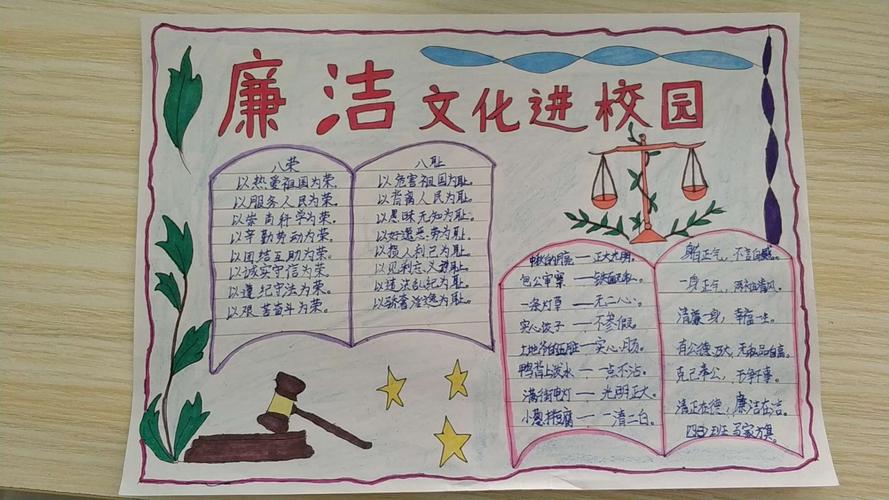 廉洁文化进校园
八荣
以热爱祖国为荣。
以服务人民为荣。
以崇尚科学为荣。
以辛勤劳动为荣。
以团结互助为荣。
以诚实守信为荣。
以遵纪守法为荣。
以艰苦奋斗为荣。
八耻
以危害祖国为耻。
以背离人民为耻。
以愚昧无知为耻。
以好逸恶劳为耻。
以损人利己为耻。
以见利忘义为耻。
以违法乱纪为耻。
以骄奢淫逸为耻。
中秋的月亮——正大光明。
包公审案——铁面无私。
一条灯草——无二心。
实心饺子——不参假。
土地爷的五脏——实心。
鸭背上泼水——一点不沾。
满街电灯——光明正大。
小葱拌豆腐——一清二白。
身有正气，不言自威。
一身正气，两袖清风。
清廉一身，幸福一生。
有公德乃大，无私品自高。
克己奉公，干净干事。
清正在德，廉洁在志。
班